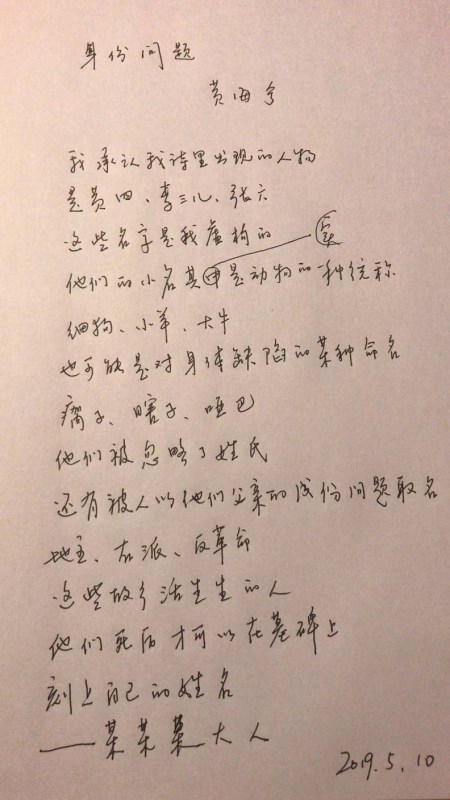 身份问题
黄海兮
我承认我诗里出现的人物
是黄四、李三儿、张六
这些名字是我虚构的
他们的小名其实是动物的一种统称
细狗、小羊、大牛
也可能是对身体缺陷的某种命名
瘸子、瞎子、哑巴
他们被忽略了姓氏
还有被人以他们父亲的成份问题取名
地主、右派、反革命
这些故乡活生生的人
他们死后才可以在墓碑上
刻上自己的姓名
——某某某大人
2019.5.10